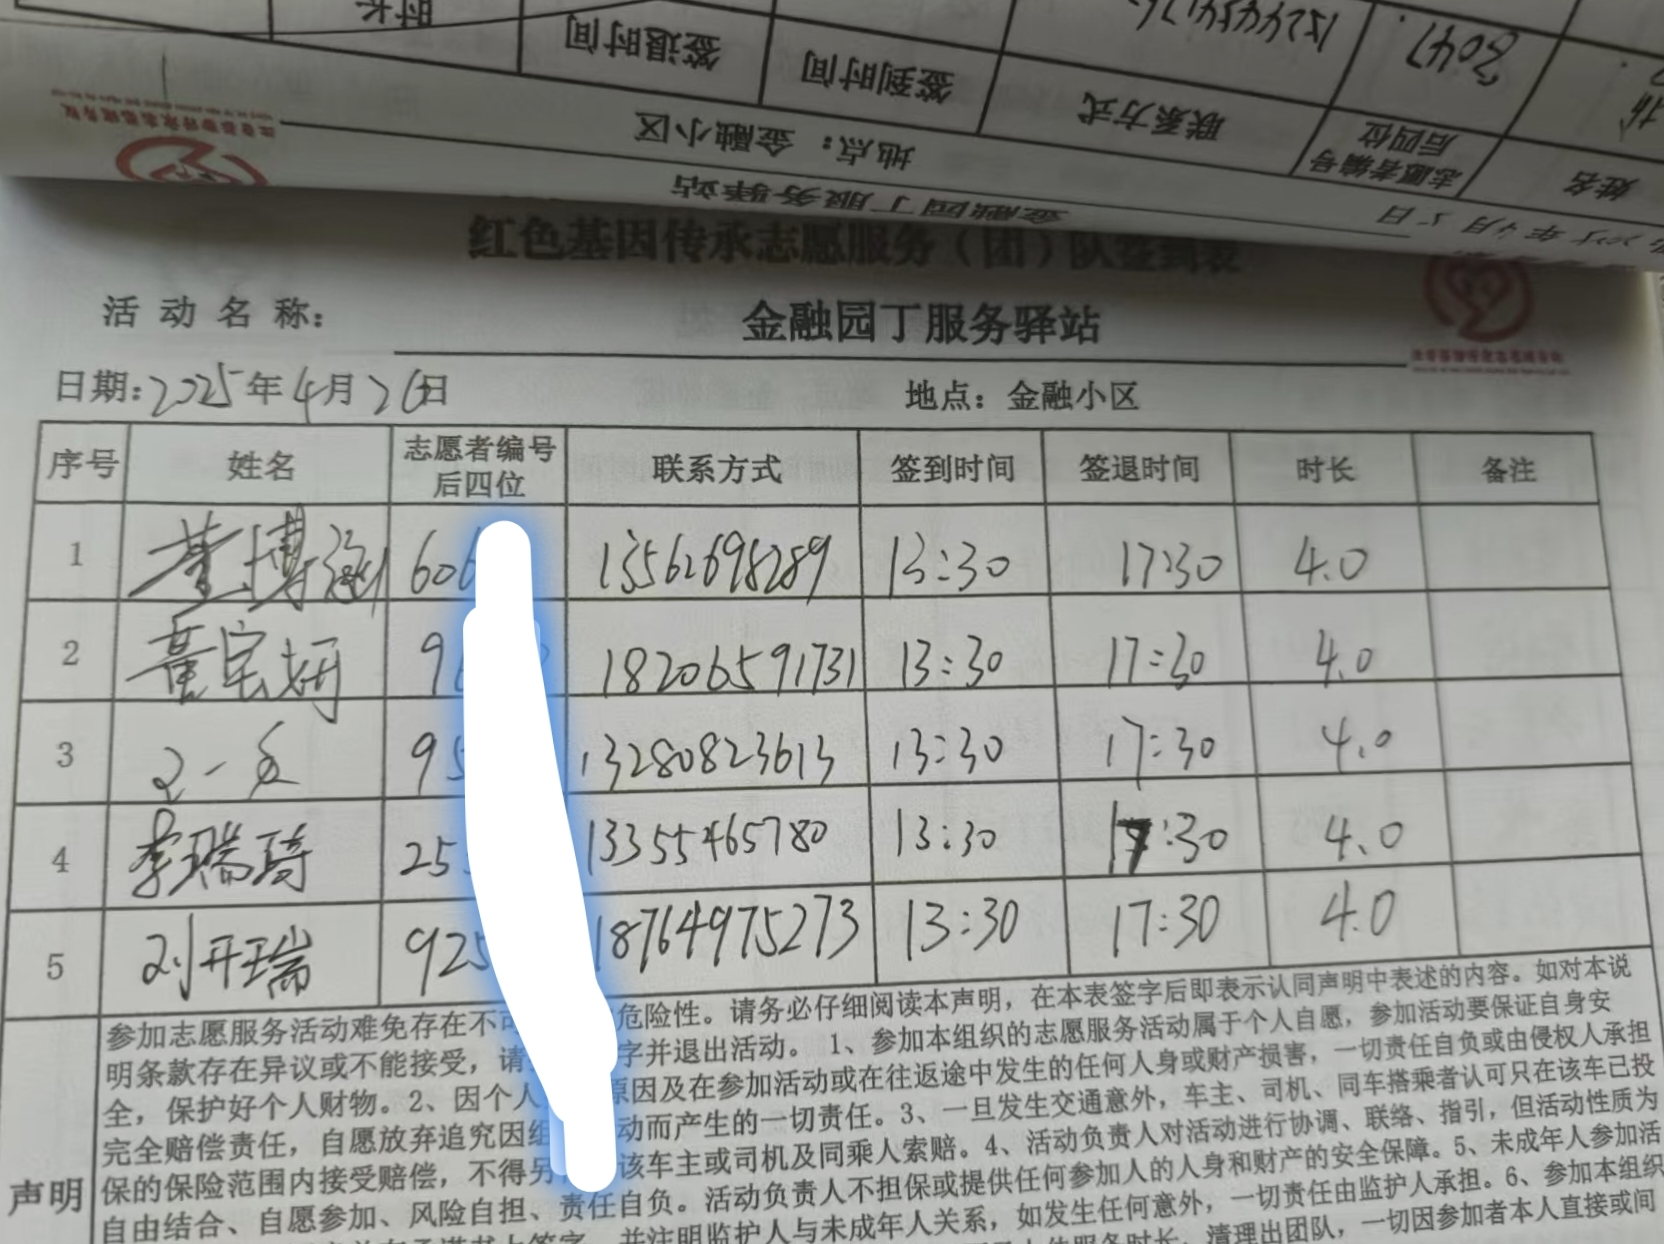 时长
签退时间
签到时间
联系方式
志愿者编号
后四位
姓名
3047
地点：金融小区
金融园丁服务驿站
红色基因传承志愿服务（团）队签到表
活动名称：
金融园丁服务驿站
日期:2025年4月26日 地点：金融小区
序号 姓名 志愿者编号后四位 联系方式 签到时间 签退时间 时长 备注
1 董博 606 13562698289 13:30 17:30 4.0
2 董宝妍 9 18206591731 13:30 17:30 4.0
3 95 13280823613 13:30 17:30 4.0
4 李瑞琦 25 13355465780 13:30 17:30 4.0
5 刘开瑞 925 18764975273 13:30 17:30 4.0
声明
参加志愿服务活动难免存在不可 危险性。请务必仔细阅读本声明，在本表签字后即表示认同声明中表述的内容。如对本说
明条款存在异议或不能接受，请 字并退出活动。 1、参加本组织的志愿服务活动属于个人自愿，参加活动要保证自身安
全，保护好个人财物。2、因个人 原因及在参加活动或在往返途中发生的任何人身或财产损害，一切责任自负或由侵权人承担
完全赔偿责任，自愿放弃追究因组 动而产生的一切责任。3、一旦发生交通意外，车主、司机、同车搭乘者认可只在该车已投
保的保险范围内接受赔偿，不得另 该车主或司机及同乘人索赔。4、活动负责人对活动进行协调、联络、指引，但活动性质为
自由结合、自愿参加、风险自担、责任自负。活动负责人不担保或提供任何参加人的人身和财产的安全保障。5、未成年人参加活
并注明监护人与未成年人关系，如发生任何意外，一切责任由监护人承担。6、参加本组织
服务时长，清理出团队，一切因参加者本人直接或间